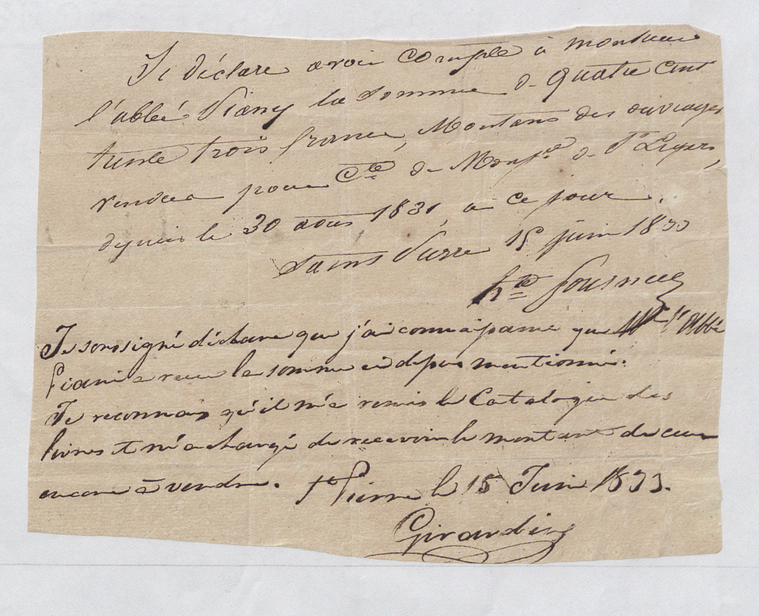 Je déclare avoir compté à monsieur
l'abbé Piany la somme de quatre cent
trente trois francs, Montant des ouvrages
vendus pour Cte de Monsr de St Legers,
depuis le 30 aout 1831, à ce jour.
Saint Pierre 15 juin 1833
hte
Je sousigné déclare que j'ai connaissance que Mr l'Abbé
Piani a reçu la somme ci depus mentionné.
Je reconnais qu'il m'a remis le Catalogue des
livres et m'a chargé de recevoir le montant de ceux
encore à vendre. St Pierre le 15 Juin 1833.
Girardin